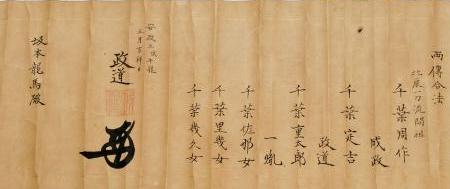 傳合法
北辰一刀流開祖
千葉周作
成政
千葉定吉
政道
千葉重太郎
一胤
千葉佐那女
千葉里幾女
千葉幾久女
安政五戊午龍
正月吉祥日
政道
坂本龍馬殿